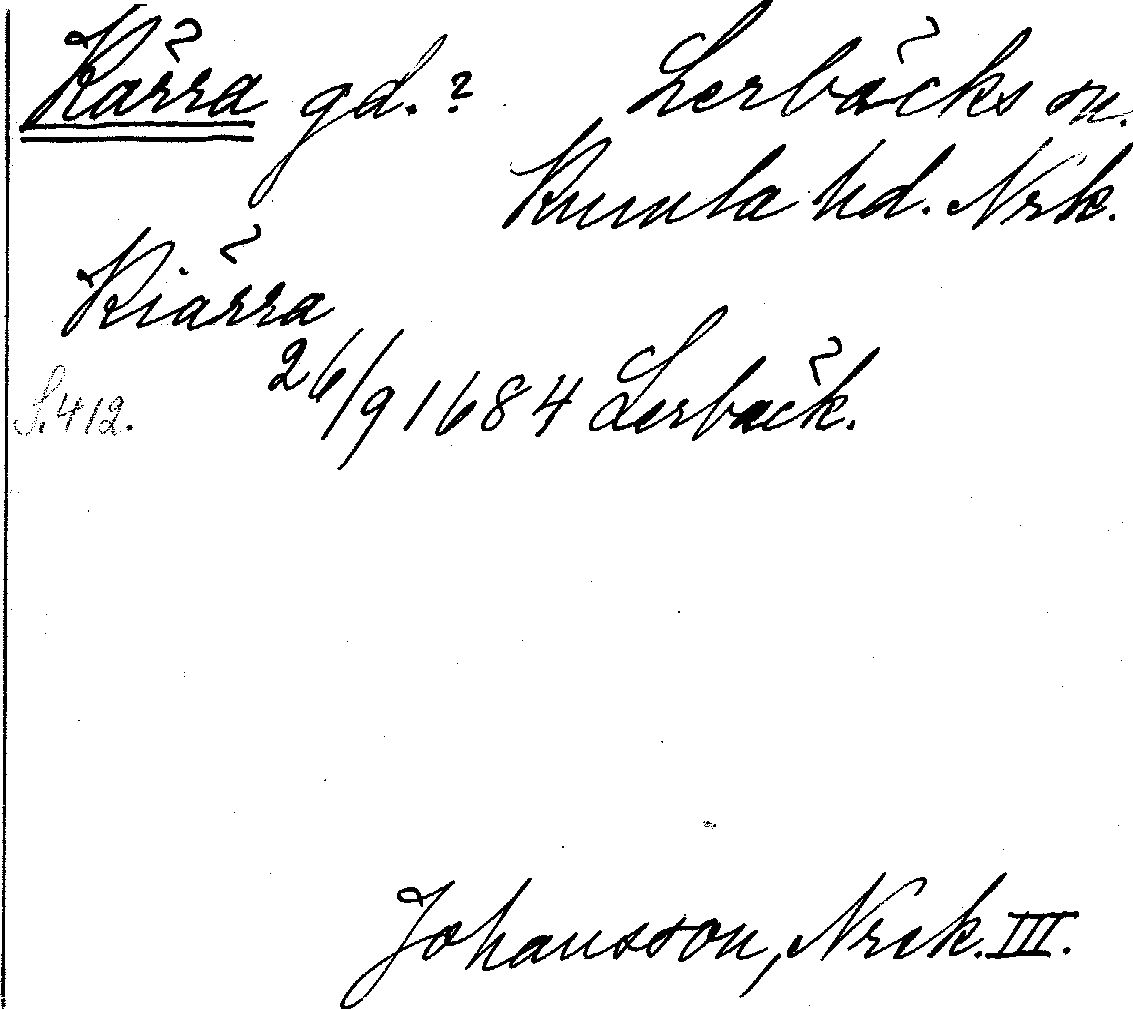 Kärra gd.? Lerbäcks sn.
Kumla hd. Nrk.
Kiärra
S. 412. 26/9 1684 Lerbäck.
Johansson, Nrck. III.